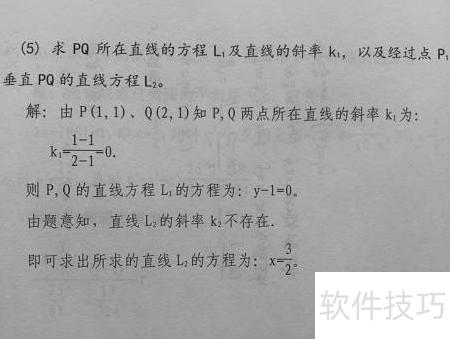 (5) 求 PQ 所在直线的方程 L₁及直线的斜率 k₁, 以及经过点 P,
垂直 PQ 的直线方程 L₂。
解: 由 P(1,1)、Q(2,1)知 P,Q 两点所在直线的斜率 k₁为:
k₁=\frac{1-1}{2-1}=0.
则 P,Q 的直线方程 L₁的方程为: y-1=0。
由题意知, 直线 L₂的斜率 k₂不存在.
即可求出所求的直线 L₂的方程为: x=\frac{3}{2}。
软件技巧